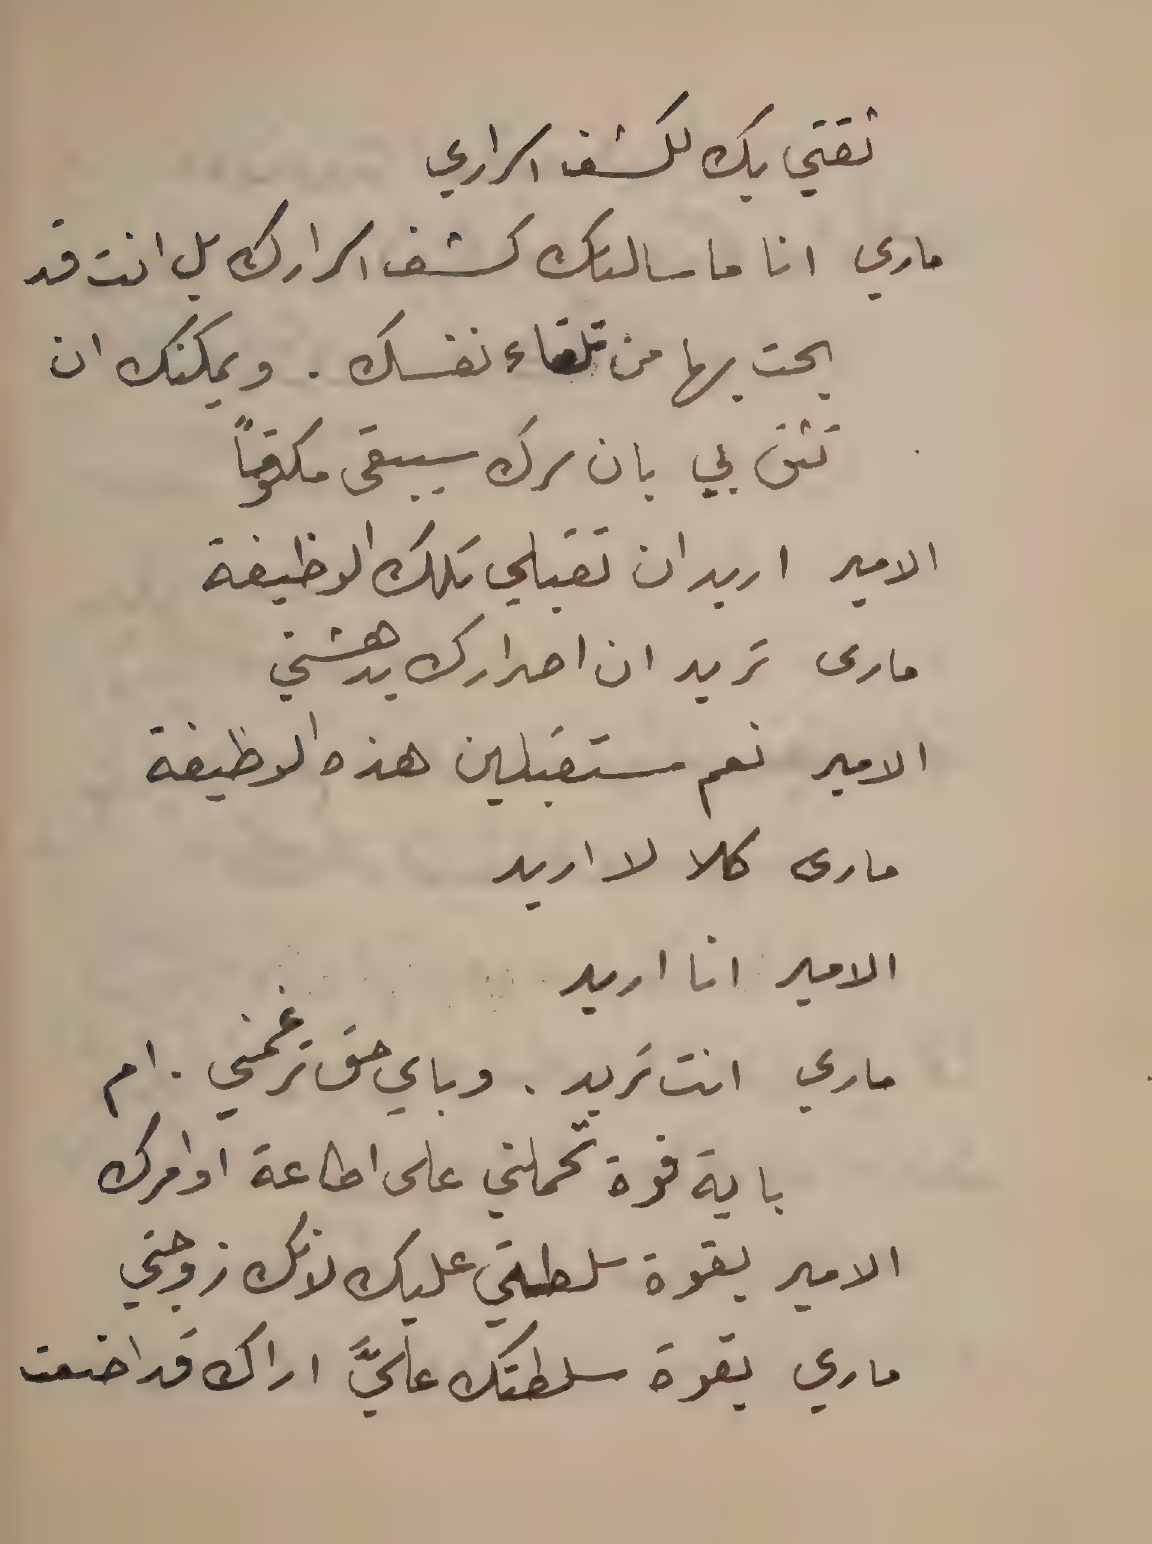 ثقتي بك لكشف اسراري
ماري انا ما سالتك كشف اسرارك بل انت قد
بحت بها من تلقاء نفسك . ويمكنك ان
تثق بي بان سرك سيبقى مكتوماً
الامير اريد ان تقبلي تلك الوظيفة
مارى تريد ان اصرارك يدهشني
الامير نعم ستقبلين هذه الوظيفة
مارى كلا لا اريد
الامير انا اريد
ماري انت تريد . وباي حق ترغمني . ام
باية قوة تحملني على اطاعة اوامرك
الامير بقوة سلطتي عليك لانك زوجتي
ماري بقوة سلطتك عليَّ اراك قد اضعت